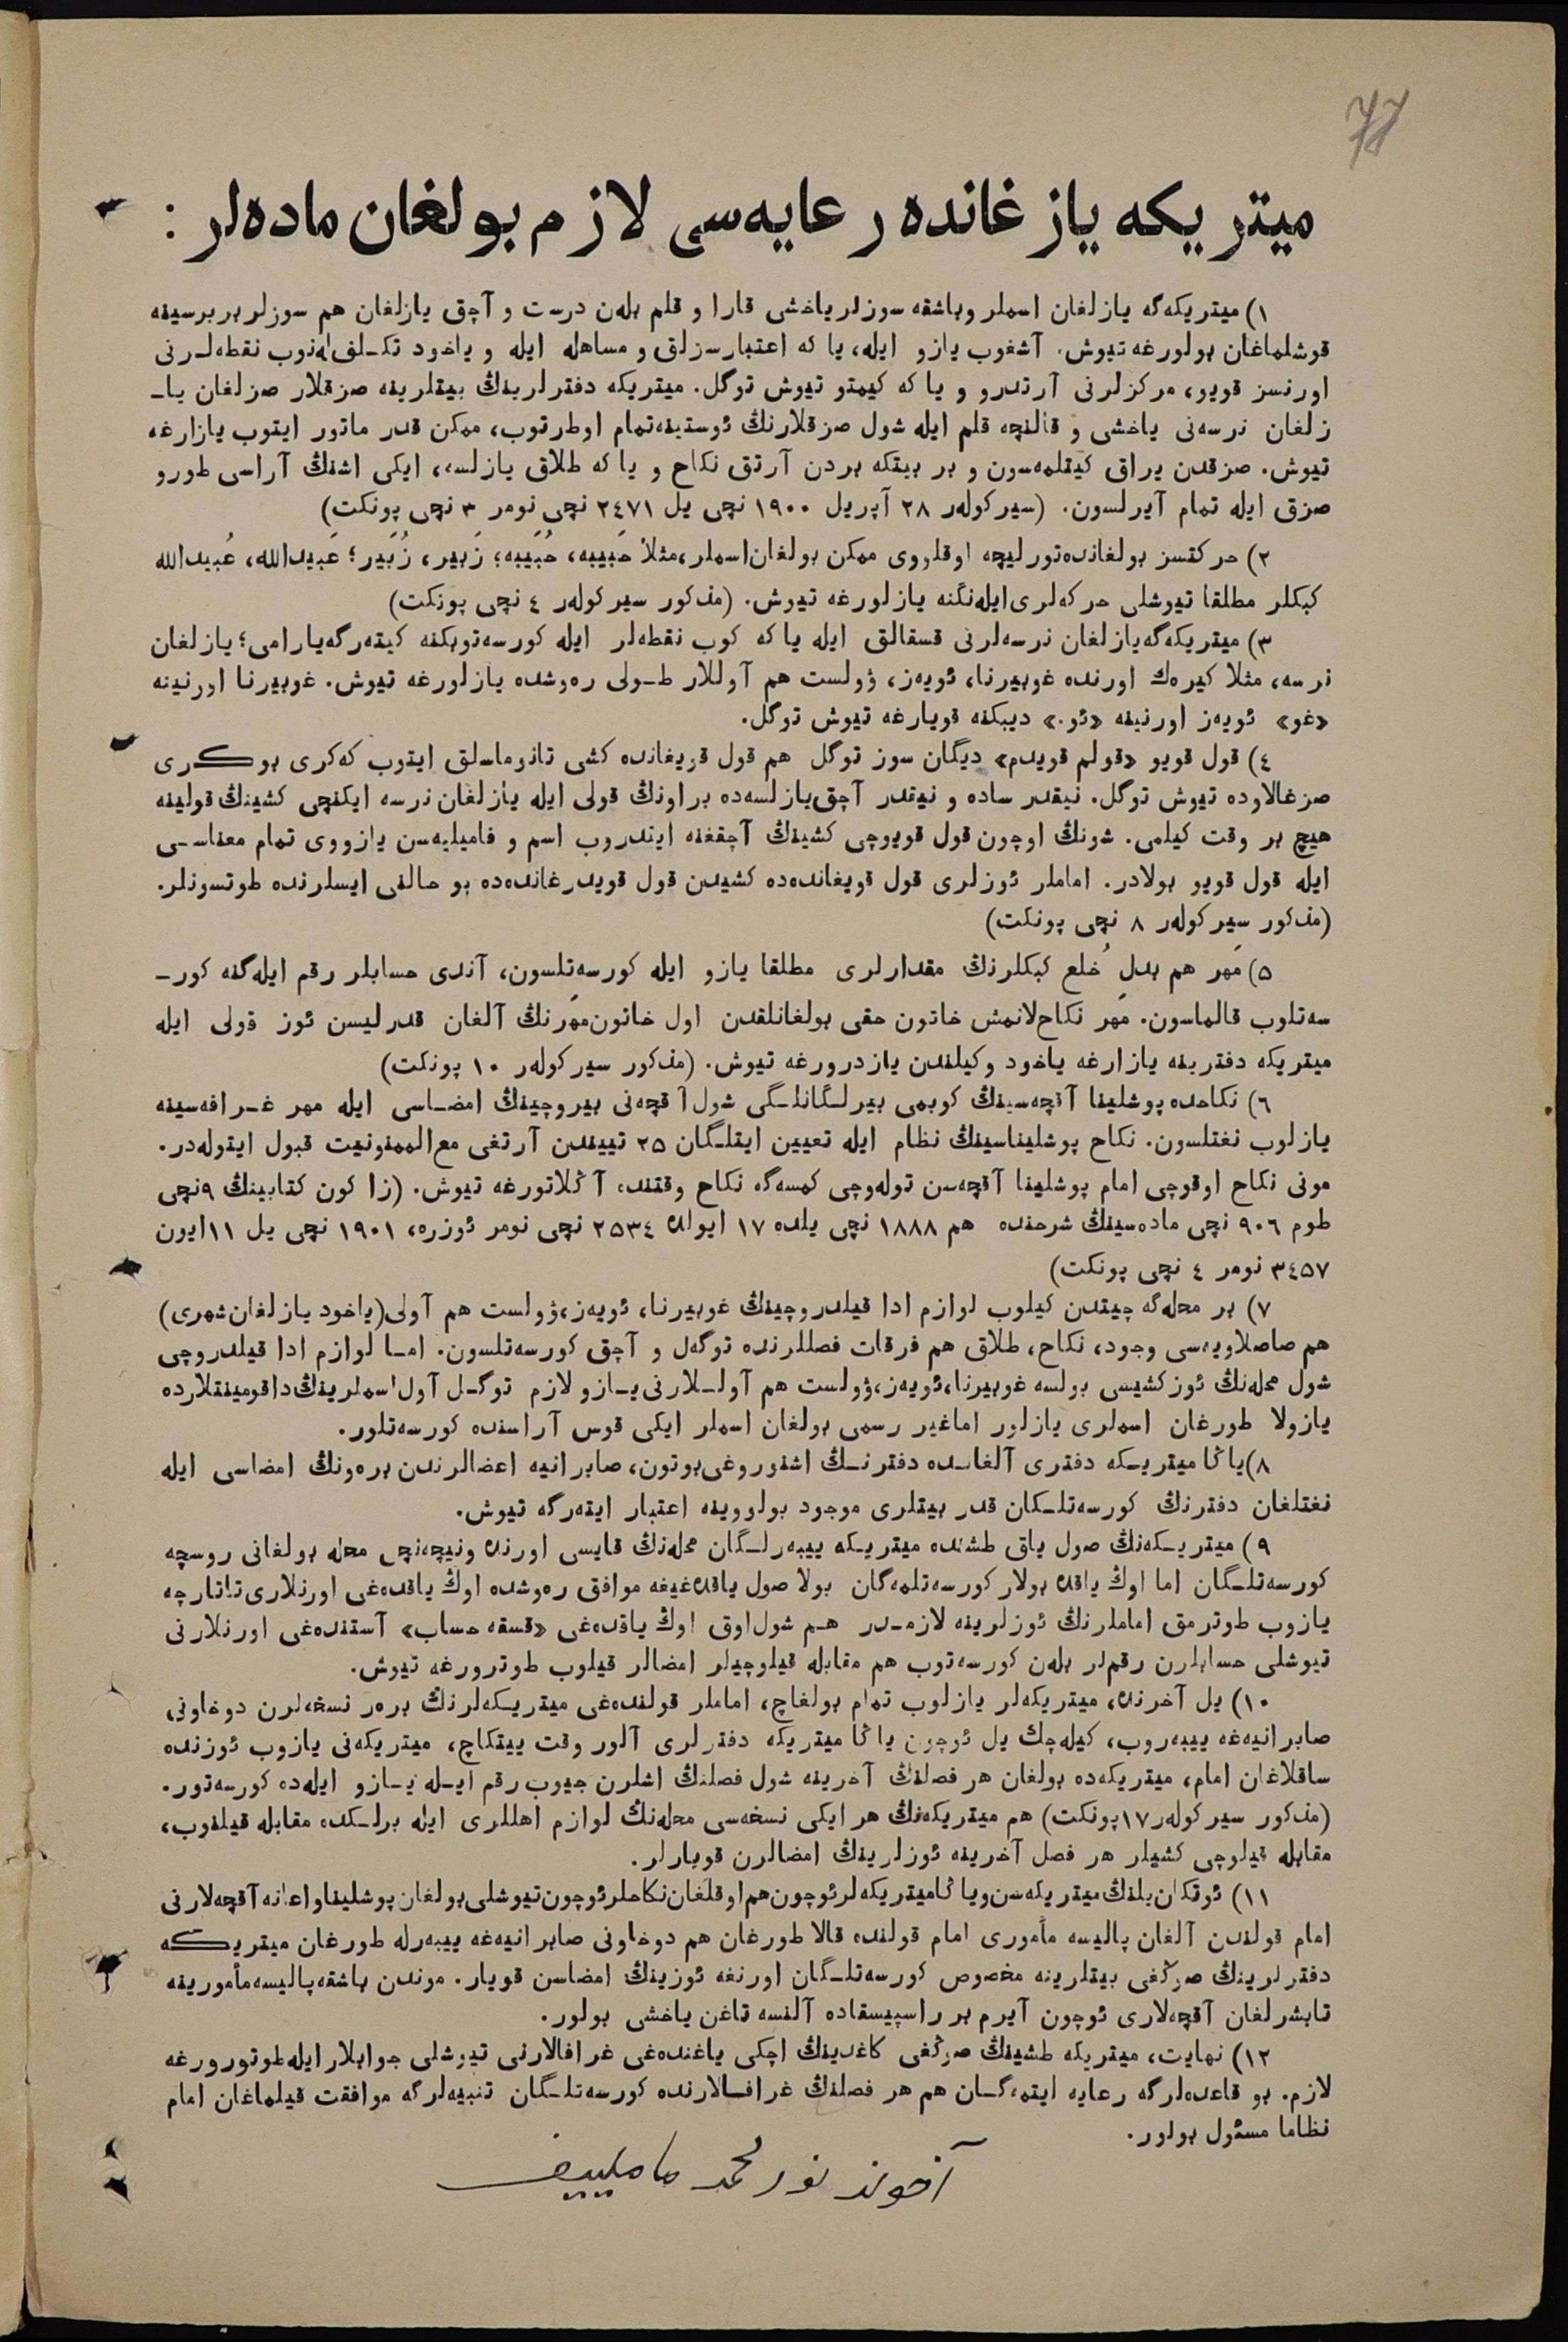 77
میتریكه یازغانده رعایه‌سی لازم بولغان ماده‌لر :
۱) میتریكه‌گه یازلغان اسملر وباشقه سوزلر یاخشی قارا و قلم بله‌ن درست و آچق یازلغان هم سوزلر بربرسینه
قوشلماغان بولورغه تیوش. آشغوب یازو ایله، یا كه اعتبارسزلق و مساهله ایله و یاخود تكـلف له‌نوب نقطه‌لـرنی
اورنسز قویو، مركزلرنی آرتدرو و یا كه كیمتو تیوش توگل. میتریكه دفترلرینڭ بیتلرینه صزقلار صزلغان یاـ
زلغان نرسه‌نی یاخشی و قالنچه قلم ایله شول صزقلارنڭ ئوستینه‌تمام اوطرتوب، ممكن قدر ماتور ایتوب یازارغه
تیوش. صزقدن یراق كیتلمه‌سون و بر بیتكه بردن آرتق نكاح و یا كه طلاق یازلسه، ایكی اشنڭ آراسی طورو
صزق ایله تمام آیرلسون. (سیركوله‌ر ۲۸ آپریل ۱۹۰۰ نچی یل ۲٤۷۱ نچی نومر ۳ نچی پونكت)
۲) حركتسز بولغانده‌تورلیچه اوقلووی ممكن بولغان‌اسملر،مثلا حَبیبه، حُبَیبه؛ زَبیر، زُبَیر؛ عَبیدالله، عُبیدالله
كبكلر مطلقا تیوشلی حركه‌لری‌ایله‌نگنه یازلورغه تیوش. (مذكور سیركوله‌ر ٤ نچی پونكت)
۳) میتریكه‌گه‌یازلغان نرسه‌لرنی قسقالق ایله یا كه كوب نقطه‌لر ایله كورسه‌توبكنه كیته‌رگه‌یارامی؛ یازلغان
نرسه، مثلا كیره‌ك اورنده غوبیرنا، ئویه‌ز، ۋولست هم آوللار طـولی ره‌وشده یازلورغه تیوش. غوبیرنا اورنینه
«غو» ئویه‌ز اورنینه «ئو.» دیبكنه قویارغه تیوش توگل.
٤) قول قویو «قولم قویدم» دیگان سوز توگل هم قول قویغانده كشی تانوماسلق ایتوب كه‌كری بوكـری
صزغالاوده تیوش توگل. نیقدر ساده و نیقدر آچق‌یازلسه‌ده براونڭ قولی ایله یازلغان نرسه ایكنچی كشینڭ قولینه
هیچ بر وقت كیلمی. شونڭ اوچون قول قویوچی كشینڭ آچقغنه ایتدروب اسم و فامیلیه‌سن یازووی تمام معناسـی
ایله قول قویو بولادر. اماملر ئوزلری قول قویغانده‌ده كشیدن قول قویدرغانده‌ده بو حالنی ایسلرنده طوتسونلر.
(مذكور سیركوله‌ر ۸ نچی پونكت)
۵) مَهر هم بدلِ خُلع كبكلرنڭ مقدارلری مطلقا یازو ایله كورسه‌تلسون، آندی حسابلر رقم ایله‌گنه كورـ
سه‌تلوب قالماسون. مَهر نكاح‌لانمش خاتون حقی بولغانلقدن اول خاتون‌مَهرنڭ آلغان قدرلیسن ئوز قولی ایله
میتریكه دفترینه یازارغه یاخود وكیلندن یازدرورغه تیوش. (مذكور سیركوله‌ر ۱۰ پونكت)
٦) نكاحده پوشلینا آقچه‌سینڭ كوبمی بیرلـگانلـگی شول آقچه‌نی بیروچینڭ امضـاسی ایله مهر غـرافه‌سینه
یازلوب نغتلسون. نكاح پوشلیناسینڭ نظام ایله تعیین ایتلـگان ۲۵ تییندن آرتغی مع‌الممنونیت قبول ایتوله‌در.
مونی نكاح اوقوچی امام پوشلینا آقچه‌سن توله‌وچی كمسه‌گه نكاح وقتنده آڭلاتورغه تیوش. (زاكون كتابینڭ ۹نچی
طوم ۹۰٦ نچی ماده‌سینڭ شرحنده هم ۱۸۸۸ نچی یلده ۱۷ ایولده ۲۵۳٤ نچی نومر ئوزره، ۱۹۰۱ نچی یل ۱۱ایون
۳٤۵۷ نومر ٤ نچی پونكت)
۷) بر محله‌گه چیتدن كیلوب لوازم ادا قیلدروچینڭ غوبیرنا، ئویه‌ز،ۋولست هم آولی(یاخود یازلغان‌شهری)
هم صاصلاویه‌سی وجود، نكاح، طلاق هم فرقات فصللرنده توگه‌ل و آچق كورسه‌تلسون. امـا لوازم ادا قیلدروچی
شول محله‌نڭ ئوزكشیسی بولسه غوبیرنا،ئویه‌ز،ۋولست هم آولـلارنی‌یـازو لازم توگـل آول‌اسملرینڭ‌داقومینتلارده
یازولا طورغان اسملری یازلور اماغیر رسمی بولغان اسملر ایكی قوس آراسنده كورسه‌تلور.
۸)یاڭا میتریـكه دفتری آلغانـده دفترنـڭ اشنوروغی‌بوتون، صابرانیه اعضالرندن بره‌ونڭ امضاسی ایله
نغتلغان دفترنڭ كورسه‌تلـكان قدر بیتلری موجود بولووینه اعتبار ایته‌رگه تیوش.
۹) میتریـكه‌نڭ صول یاق طشنده میتریـكه ییبه‌رلـگان محله‌نڭ قایسی اورنده ونیچه‌نچی محله بولغانی روسچه
كورسه‌تلـگان اما اوڭ یاقده بولار كورسه‌تلمه‌گان بولا صول یاقده‌غیغه موافق ره‌وشده اوڭ یاقده‌غی اورنلاری‌تاتارچه
یازوب طوترمق اماملرنڭ ئوزلرینه لازمـدر هـم شول‌اوق اوڭ یاقده‌غی «قسقه حساب» آستنده‌غی اورنلارنی
تیوشلی حسابلرن رقم‌لر بله‌ن كورسه‌توب هم مقابله قیلوچیلر امضالر قیلوب طوترورغه تیوش.
۱۰) یل آخرنده، میتریكه‌لر یازلوب تمام بولغاچ، اماملر قولنده‌غی میتریـكه‌لرنڭ بره‌ر نسخه‌لرن دوخاونی
صابرانیه‌غه ییبه‌روب، كیله‌چك یل ئوچون یاڭا میتریكه دفترلری آلور وقت ییتكاچ، میتریكه‌نی یازوب ئوزنده
ساقلاغان امام، میتریكه‌ده بولغان هر فصلنڭ آخرینه شول فصلنڭ اشلرن جیوب رقم ایـله یـازو ایله‌ده كورسه‌تور.
(مذكور سیركوله‌ر۱۷پونكت) هم میتریكه‌نڭ هر ایكی نسخه‌سی محله‌نڭ لوازم اهللری ایله برلـكده مقابله قیلنوب،
مقابله قیلوچی كشیلر هر فصل آخرینه ئوزلرینڭ امضالرن قویارلر.
۱۱) ئوتكان‌یلنڭ‌میتریكه‌سن‌ویاڭامیتریكه‌لرئوچون‌هم‌اوقلغان‌نكاحلرئوچون‌تیوشلی‌بولغان‌پوشلیناواعانه‌آقچه‌لارنی
امام قولندن آلغان پالیسه مأموری امام قولنده قالا طورغان هم دوخاونی صابرانیه‌غه ییبه‌رله طورغان میتریـكه
دفترلرینڭ صوڭغی بیتلرینه مخصوص كورسه‌تلـگان اورنغه ئوزینڭ امضاسن قویار. موندن باشقه‌پالیسه‌مأمورینه
تابشرلغان آقچه‌لاری ئوچون آیرم بر راسپیسقاده آلنسه تاغن یاخشی بولور.
۱۲) نهایت، میتریكه طشینڭ صوڭغی كاغدینڭ اچكی یاغنده‌غی غرافالارنی تیوشلی جوابلارایله‌طوتورورغه
لازم. بو قاعده‌لرگه رعایه ایتمه‌گـان هم هر فصلنڭ غرافـالارنده كورسه‌تلـگان تنبیه‌لرگه موافقت قیلماغان امام
نظاما مسئول بولور.
آخوند نورمحمد ماملییف